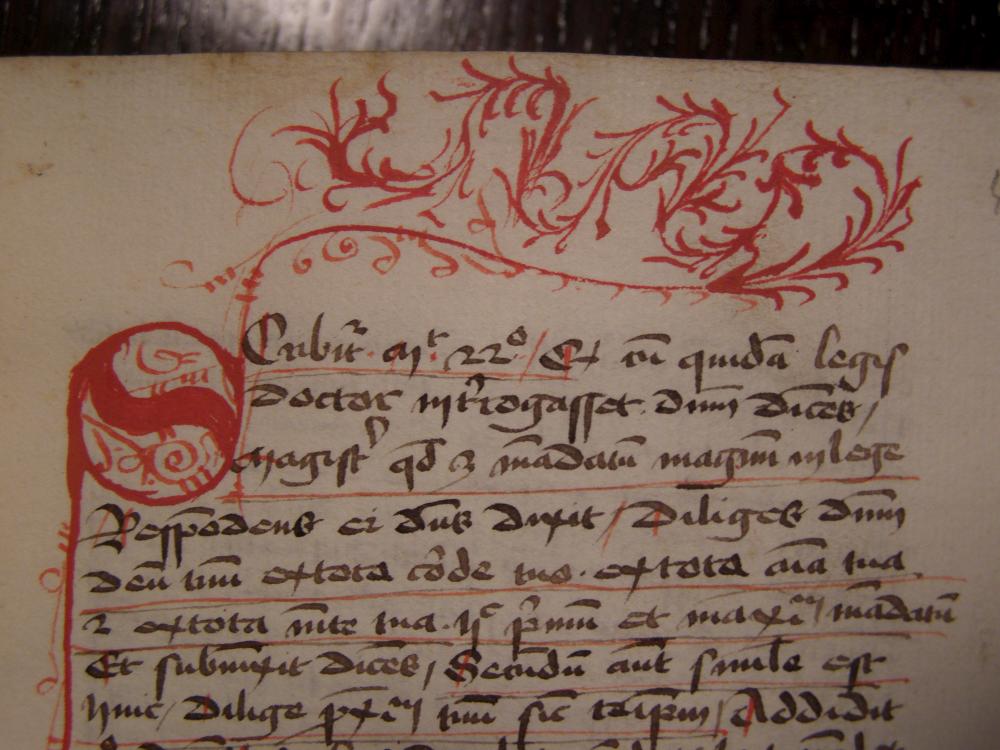 Scribit᷑ mt 22o Et cū quidā legis
doctor int̄rogasset dnm dicēs /
Magist̄ qd ꝫ mādatū magnū in lege
Respondens ei dūs dixit / Diliges dnm
deū tuū ex tota corde tuo . ex tota aīa tua
2 ex tota mēte tua . p̄mū et maxīm mādatū
Et subiūxit dicēs / Secūdū aūt simile est
huic / Dilige prxīm tuū sic teipsm / Addidit